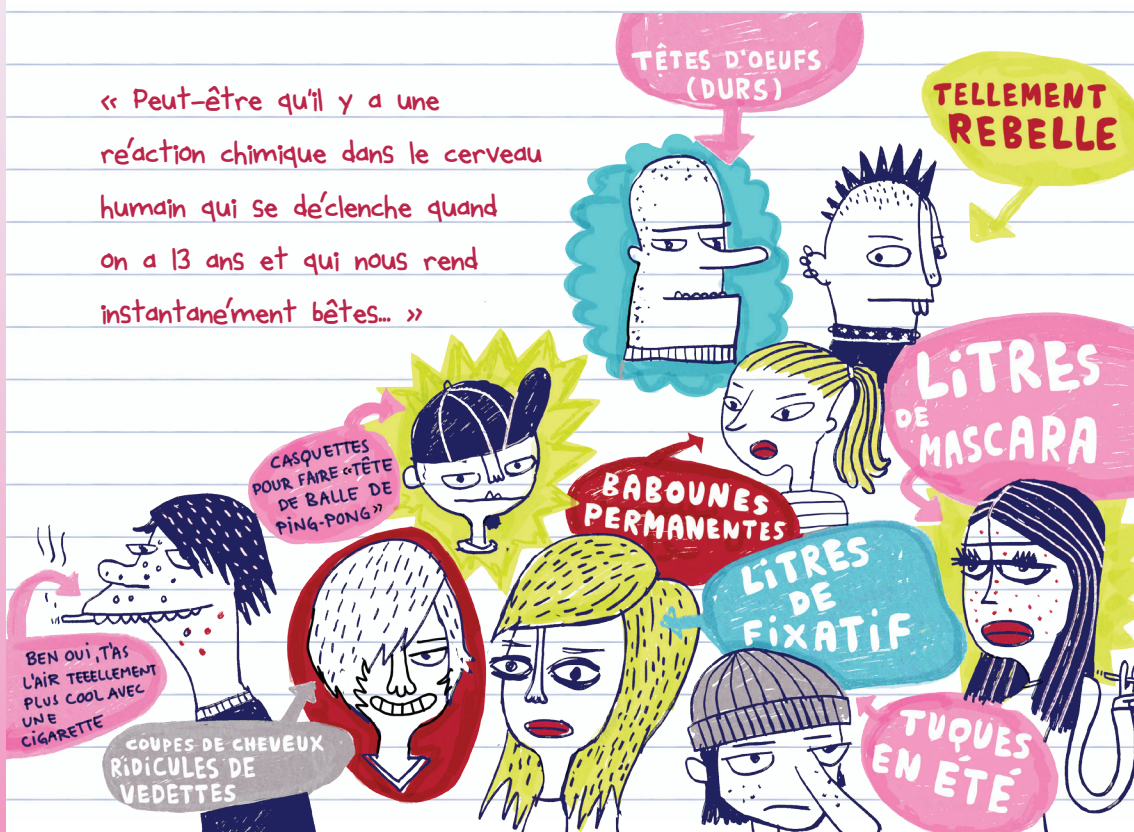 « Peut-être qu'il y a une
réaction chimique dans le cerveau
humain qui se déclenche quand
on a 13 ans et qui nous rend
instantanément bêtes... »
TÊTES D'OEUFS
(DURS)
TELLEMENT
REBELLE
LITRES
DE
MASCARA
CASQUETTES
POUR FAIRE «TÊTE
DE BALLE DE
PING-PONG»
BABOUNES
PERMANENTES
LITRES
DE
FIXATIF
BEN OUI, T'AS
L'AIR TEEELLEMENT
PLUS COOL AVEC
UNE
CIGARETTE
COUPES DE CHEVEUX
RIDICULES DE
VEDETTES
TUQUES
EN ÉTÉ